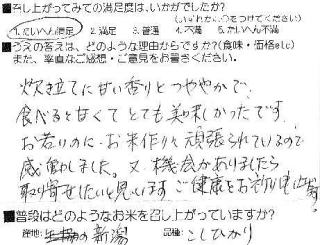 ■召し上がってみての満足度は、いかがでしたか?
(いずれかに○をつけてください)
1.たいへん満足 2.満足 3.普通 4.不満 5.たいへん不満
■うえの答えは、どのような理由からですか?(食味・価格etc)
また、率直なご感想・ご意見をお書きください。
炊き立てに甘い香りとつややかで、
食べると甘くてとても美味しかったです。
お若いのに・お米作りと頑張られているので
感動しました。又、機会がありましたら
取り寄せしたいと思います ご健康をお祈り
■普段はどのようなお米を召し上がっていますか?
産地: の新潟 品種: こしひかり